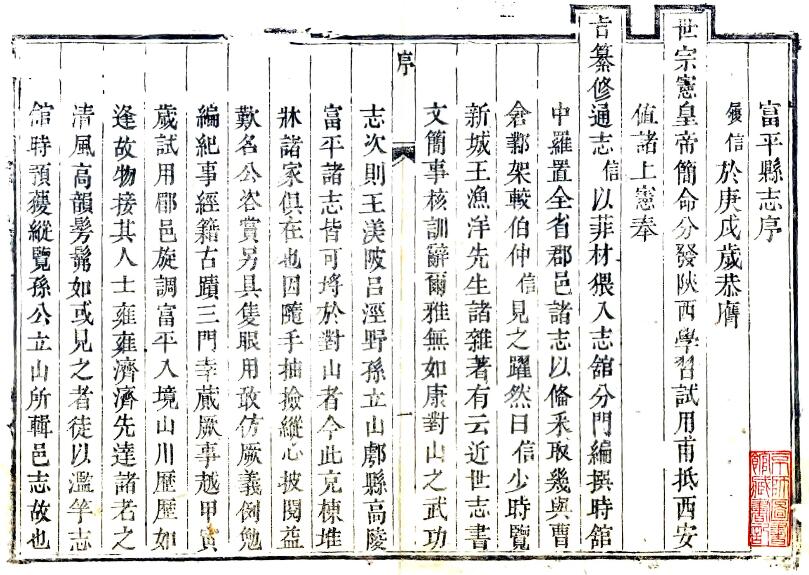 富平縣志序
履信於庚戌歲恭膺
世宗憲皇帝簡命分發陝西學習試用甫抵西安
值諸上憲奉
旨纂修通志信以菲材猥入志舘分門編撰時舘
中羅置全省郡邑諸志以俻采取幾與曹
倉鄴架較伯仲信見之躍然曰信少時覽
新城王漁洋先生諸雜著有云近世志書
文簡事核訓辭爾雅無如康對山之武功
序
一
志次則王渼陂吕涇野孫立山鄠縣高陵
富平諸志皆可埓於對山者今此充棟堆
牀諸家俱在也因隨手抽撿縱心披閱益
歎名公咨賞另具隻眼用敢仿厥義例勉
編紀事經籍古蹟三門幸蕆厥事越甲寅
歲試用郿邑旋調富平入境山川歷歷如
逢故物接其人士雍雍濟濟先達諸者之
清風高韻髣髴如或見之者徒以濫竽志
舘時預獲縱覽孫公立山所輯邑志故也